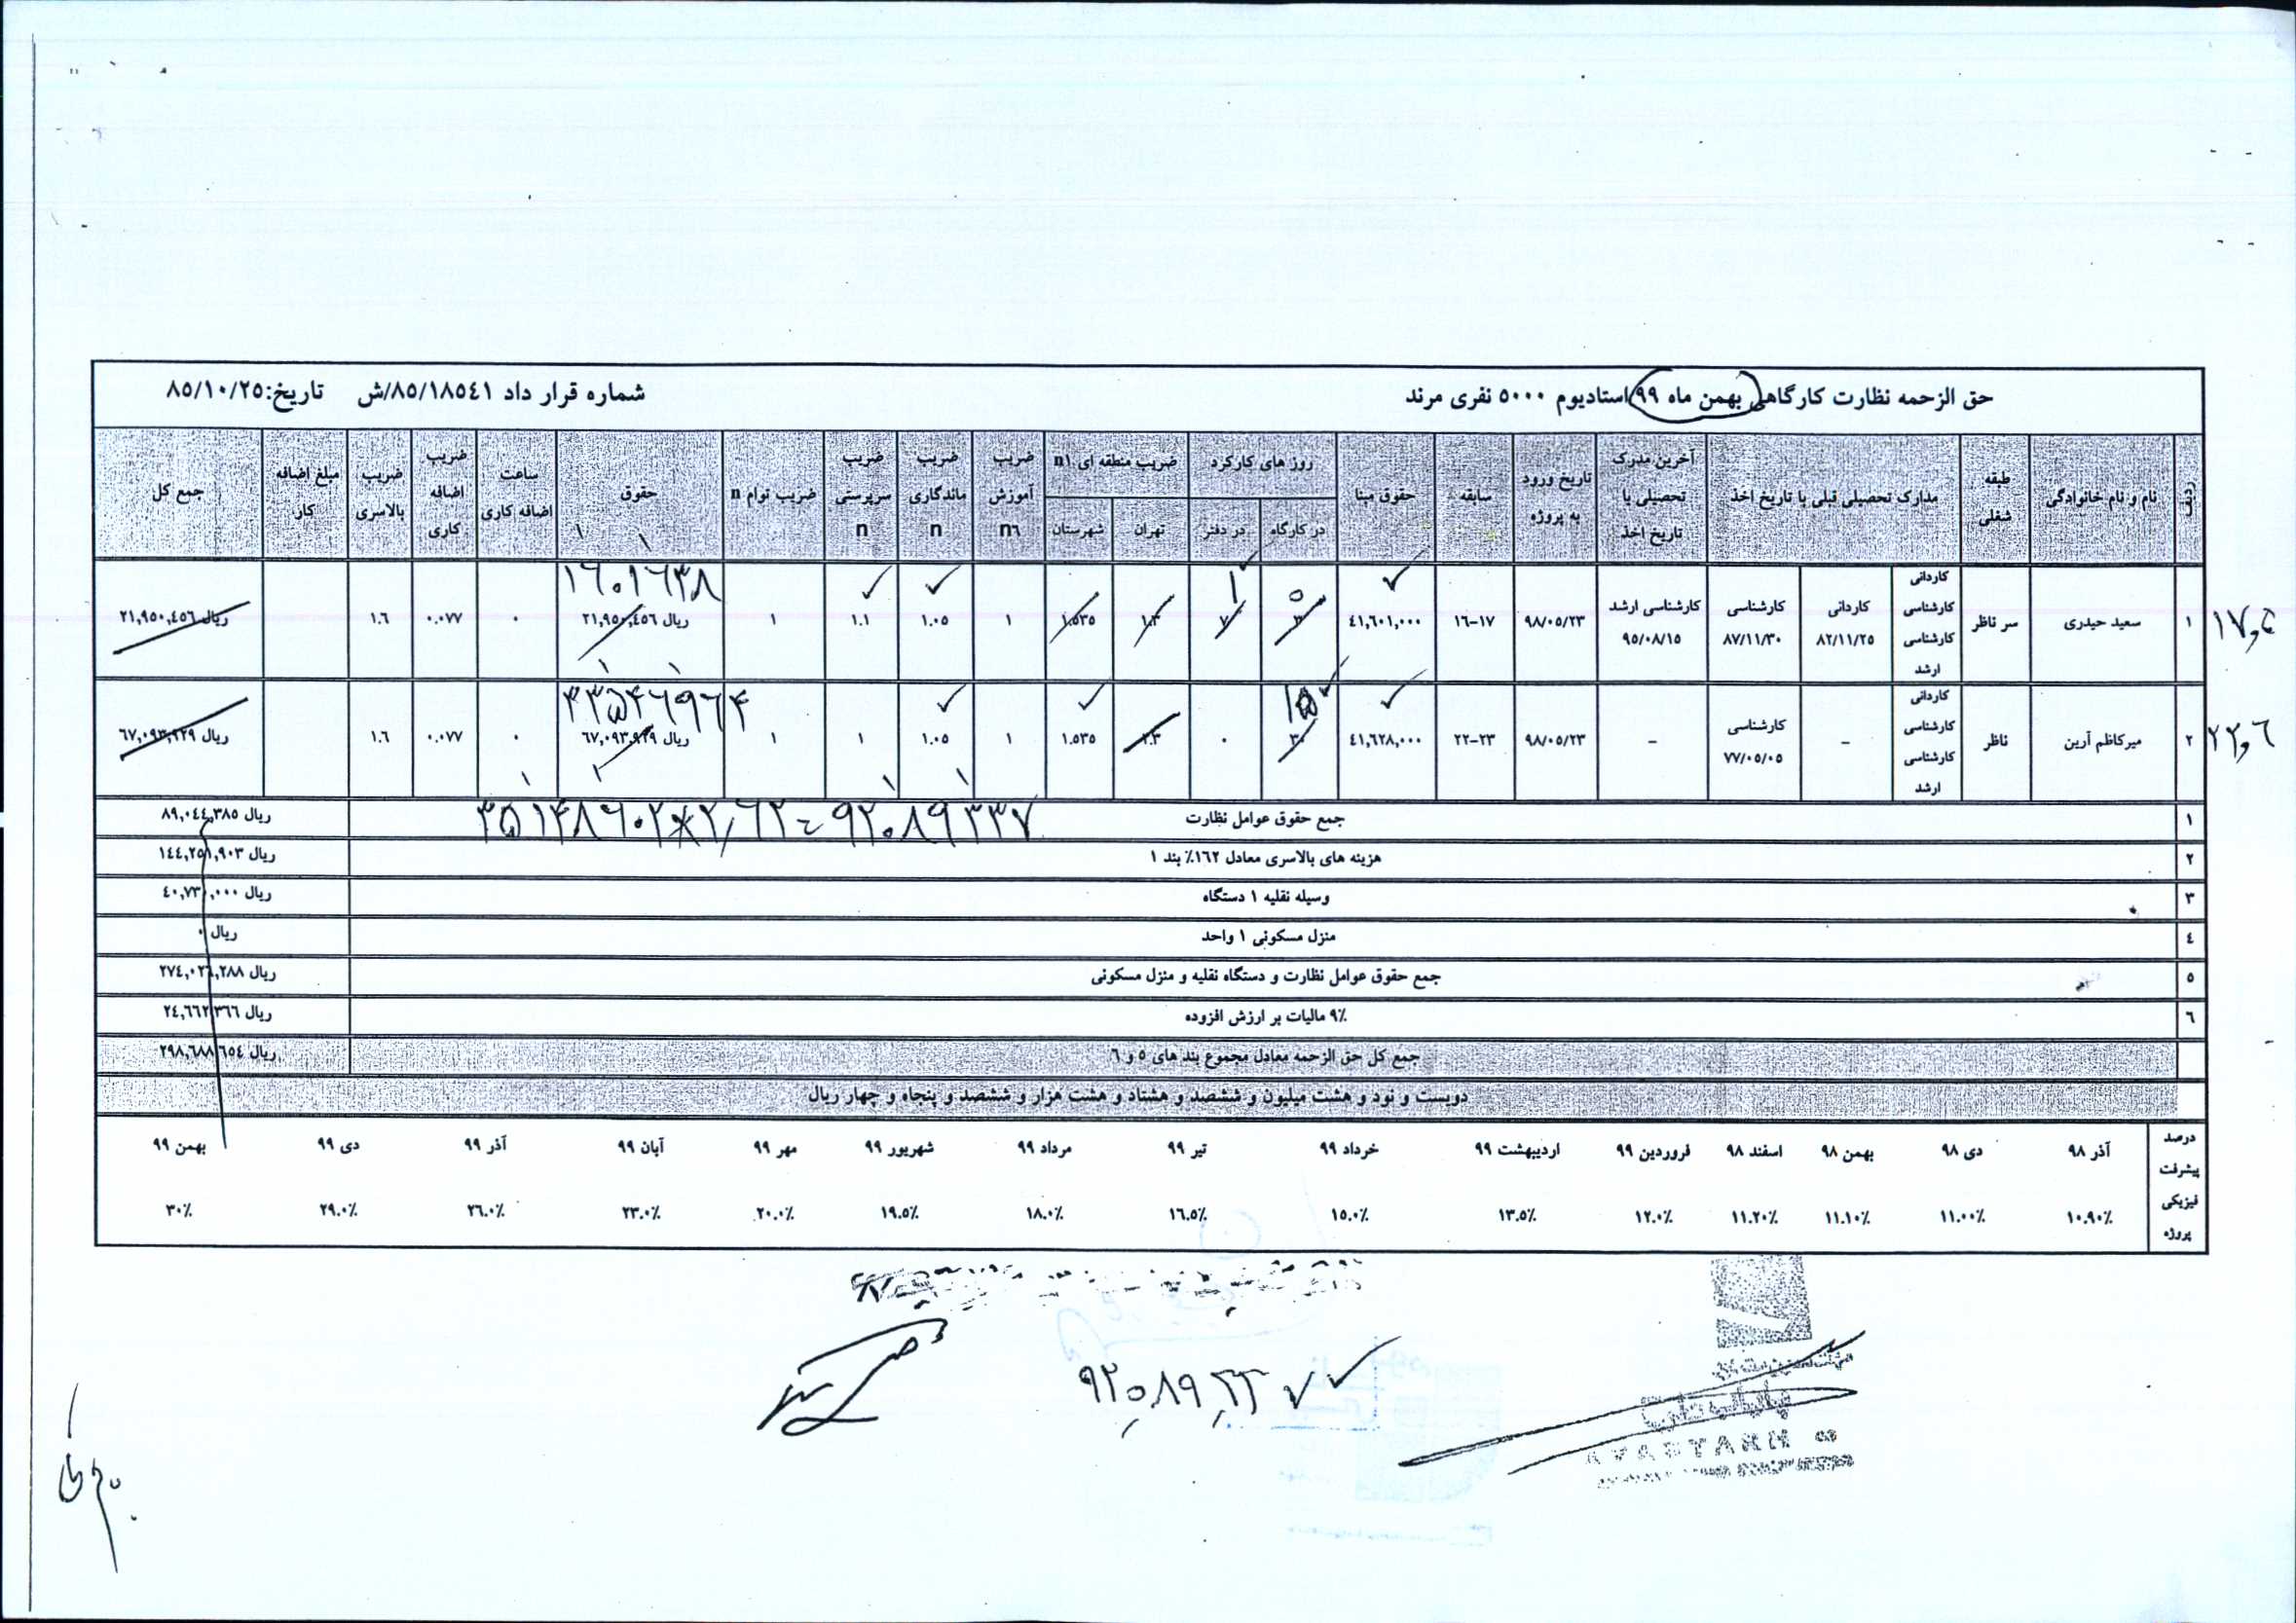 حق الزحمه نظارت کارگاهی بهمن ماه ۹۹ استادیوم ۵۰۰۰ نفری مرند شماره قرار داد ۸۵/۱۸۵٤۱/ش تاریخ:۸۵/۱۰/۲۵
ردیف نام و نام خانوادگی طبقه شغلی مدارک تحصیلی قبلی با تاریخ اخذ آخرین مدرک تحصیلی با تاریخ اخذ تاریخ ورود به پروژه سابقه حقوق مبنا روز های کارکرد در کارگاه در دفتر ضریب منطقه ای n۱ تهران شهرستان ضریب آموزش n٦ ضریب ماندگاری n ضریب سرپرستی n ضریب توام n حقوق ساعت اضافه کاری ضریب اضافه کاری ضریب بالاسری مبلغ اضافه کار جمع کل
۱٦۰۱٦۳۸
۱۷,۵ ۱ سعید حیدری سر ناظر کاردانی کارشناسی کارشناسی ارشد کاردانی ۸۲/۱۱/۲۵ کارشناسی ۸۷/۱۱/۳۰ کارشناسی ارشد ۹۵/۰۸/۱۵ ۹۸/۰۵/۲۳ ۱٦-۱۷ ٤۱,٦۰۱,۰۰۰ ۳ ۰ ۷ ۱ ۱.۳ ۱.۵۳۵ ۱ ۱.۰۵ ۱.۱ ۱ ریال ۲۱,۹۵۰,٤۵٦ ۰ ۰.۰۷۷ ۱.٦ ریال ۲۱,۹۵۰,٤۵٦
۳۳۵۴٦۹٦۴
۲۲,٦ ۲ میرکاظم آرین ناظر کاردانی کارشناسی کارشناسی ارشد - کارشناسی ۷۷/۰۵/۰۵ - ۹۸/۰۵/۲۳ ۲۲-۲۳ ٤۱,٦۲۸,۰۰۰ ۳۰ ۱۵ ۰ ۱.۳ ۱.۵۳۵ ۱ ۱.۰۵ ۱ ۱ ریال ٦۷,۰۹۳,۹۲۹ ۰ ۰.۰۷۷ ۱.٦ ریال ٦۷,۰۹۳,۹۲۹
۱ جمع حقوق عوامل نظارت ۳۵۱۴۸٦۰۲×۲,٦۲=۹۲۰۸۹۳۳۷ ریال ۸۹,۰٤٤,۳۸۵
۲ هزینه های بالاسری معادل ۱٦۲٪ بند ۱ ریال ۱٤٤,۲۵۱,۹۰۳
۳ وسیله نقلیه ۱ دستگاه ریال ٤۰,۷۳۰,۰۰۰
٤ منزل مسکونی ۱ واحد ریال ۰
۵ جمع حقوق عوامل نظارت و دستگاه نقلیه و منزل مسکونی ریال ۲۷٤,۰۲٦,۲۸۸
٦ ۹٪ مالیات بر ارزش افزوده ریال ۲٤,٦٦۲,۳٦٦
جمع کل حق الزحمه معادل مجموع بند های ۵ و ٦ ریال ۲۹۸,٦۸۸,٦۵٤
دویست و نود و هشت میلیون و ششصد و هشتاد و هشت هزار و ششصد و پنجاه و چهار ریال
درصد پیشرفت فیزیکی پروژه
آذر ۹۸ دی ۹۸ بهمن ۹۸ اسفند ۹۸ فروردین ۹۹ اردیبهشت ۹۹ خرداد ۹۹ تیر ۹۹ مرداد ۹۹ شهریور ۹۹ مهر ۹۹ آبان ۹۹ آذر ۹۹ دی ۹۹ بهمن ۹۹
۱۰.۹۰٪ ۱۱.۰۰٪ ۱۱.۱۰٪ ۱۱.۲۰٪ ۱۲.۰٪ ۱۳.۵٪ ۱۵.۰٪ ۱٦.۵٪ ۱۸.۰٪ ۱۹.۵٪ ۲۰.۰٪ ۲۳.۰٪ ۲٦.۰٪ ۲۹.۰٪ ۳۰٪
۹۲,۰۸۹,۳۳۷